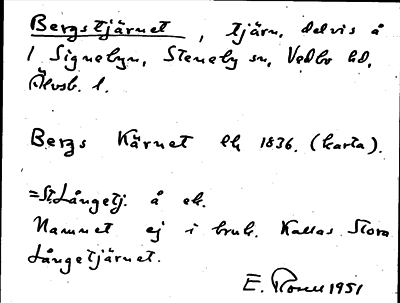 Bergstjärnet, tjärn, delvis å
1 Signebyn, Steneby sn, Vedbo hd,
Älvsb. l.
Bergs Kärnet lh 1836. (karta).
=St.Långetj. å ek.
Namnet ej i bruk. Kallas Stora
Långetjärnet.
E. Rosell 1951